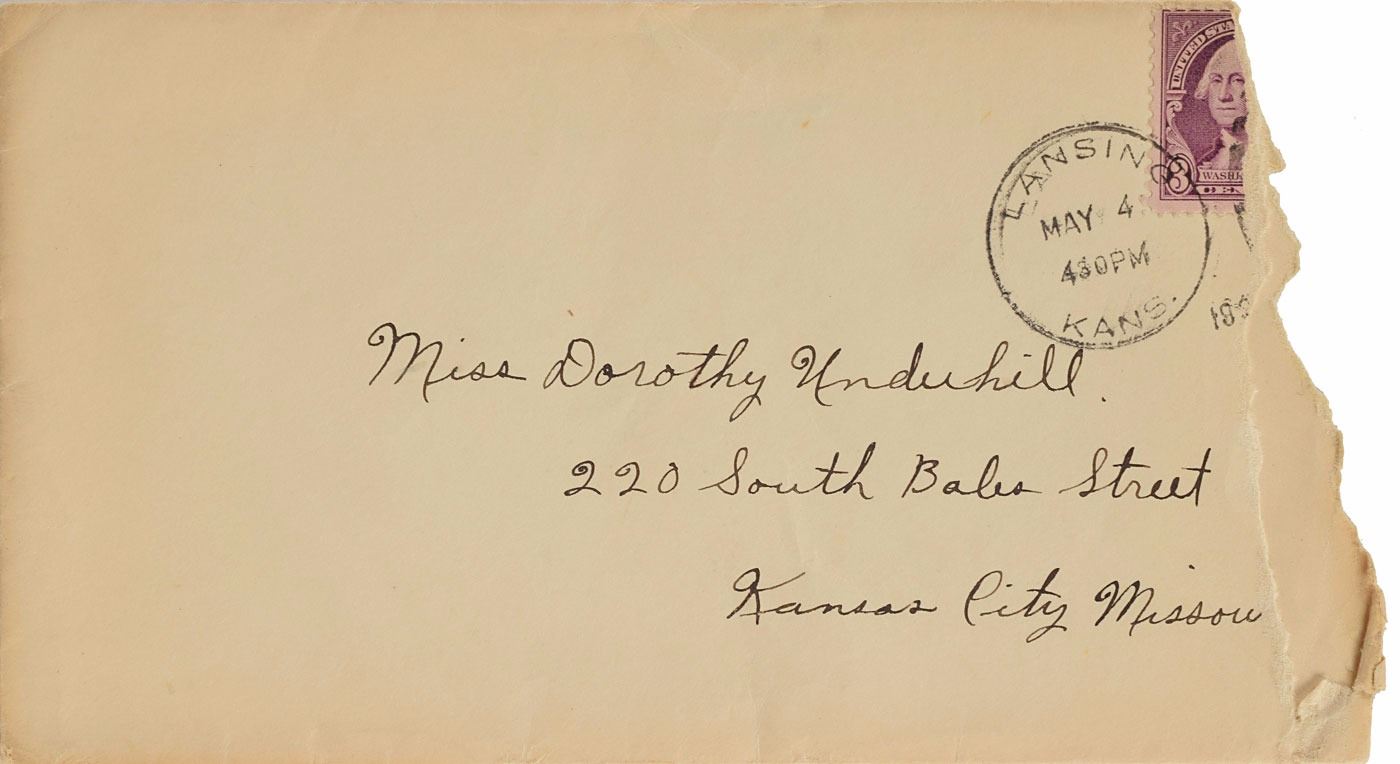 UNITED STA
3
WASH
LANSING
MAY 4
430PM
KANS.
Miss Dorothy Underhill.
220 South Bales Street
Kansas City Missou